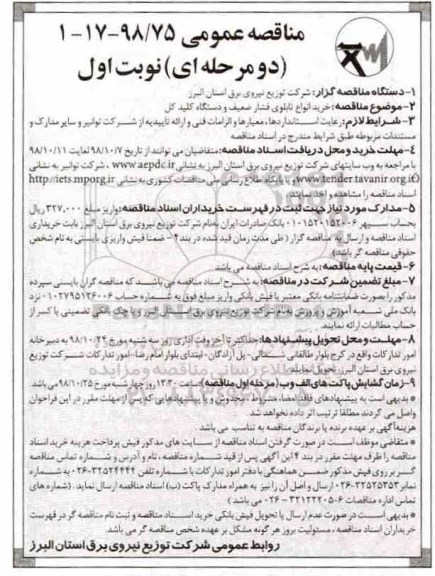 مناقصه عمومی ۹۸/۷۵-۱۷-۱
(دو مرحله ای) نوبت اول
۱-دستگاه مناقصه گزار: شرکت توزیع نیروی برق استان البرز
۲-موضوع مناقصه: خرید انواع تابلوی فشار ضعیف و دستگاه کلید کل
۳-شرایط لازم: رعایت استانداردها، معیارها و الزامات فنی و ارائه تاییدیه از شرکت توانیر و سایر مدارک و
مستندات مربوطه طبق شرایط مندرج در اسناد مناقصه
۴-مهلت خرید و محل دریافت اسناد مناقصه: متقاضیان می توانند از تاریخ ۹۸/۱۰/۷ لغایت ۹۸/۱۰/۱۱
با مراجعه به وب سایتهای شرکت توزیع نیروی برق استان البرز به نشانی www.aepdc.ir، شرکت توانیر به نشانی
(www.tender.tavanir.org.ir) و پایگاه اطلاع رسانی ملی مناقصات کشوری به نشانی http://iets.mporg.ir
اسناد مناقصه را مشاهده و اخذ نمایند.
۵-مدارک مورد نیاز جهت ثبت در فهرست خریداران اسناد مناقصه: واریز مبلغ ۳۲۷,۰۰۰ ریال
بحساب سپهر ۰۱۰۱۵۲۰۱۵۲۰۰۶ بانک صادرات ایران بنام شرکت توزیع نیروی برق استان البرز بابت خریداری
اسناد مناقصه و ارسال به مناقصه گزار (طی مدت زمان قید شده در بند ۴- ضمنا فیش واریزی بایستی به نام شخص
حقوقی مناقصه گر باشد)
۶-قیمت پایه مناقصه: به شرح اسناد مناقصه می باشد
۷-مبلغ تضمین شرکت در مناقصه: به شرح اسناد مناقصه می باشد که مناقصه گران بایستی سپرده
مذکور را بصورت ضمانتنامه بانکی معتبر یا فیش بانکی واریز مبلغ فوق به شماره حساب ۰۱۰۲۷۹۵۱۲۶۰۰۶ نزد
بانک ملی شعبه آموزش و پرورش بنام شرکت توزیع نیروی برق استان البرز و یا چک بانکی تضمینی یا کسر از
حساب مطالبات ارائه نمایند.
۸-مهلت و محل تحویل پیشنهادها: حداکثر تا آخر وقت اداری روز سه شنبه مورخ ۹۸/۱۰/۲۴ به دبیرخانه
امور تدارکات واقع در کرج بلوار طالقانی شمالی- پل آزادگان- ابتدای بلوار امام رضا- امور تدارکات شرکت توزیع
نیروی برق استان البرز تحویل نمایند.
۹-زمان گشایش پاکت های الف و ب (مرحله اول مناقصه): ساعت ۱۳:۳۰ روز چهارشنبه مورخ ۹۸/۱۰/۲۵ می باشد
* بدیهی است به پیشنهادهای فاقد امضا، مشروط و مخدوش و یا پیشنهادهایی که پس از مهلت مقرر در این فراخوان
واصل می گردند مطلقا ترتیب اثر داده نخواهد شد.
هزینه آگهی بر عهده برنده یا برندگان مناقصه به تناسب می باشد
* متقاضی موظف است در صورت گرفتن اسناد مناقصه از سایت های مذکور فیش پرداخت هزینه خرید اسناد
مناقصه را ظرف مهلت مقرر در بند ۴ این آگهی پس از قید شماره مناقصه، نام و آدرس و شماره تماس مناقصه
گر بر روی فیش مذکور ضمن هماهنگی با دفتر امور تدارکات با شماره تلفن ۳۲۵۲۴۴۴۴-۰۲۶ به شماره
نمابر ۳۲۵۲۵۳۵۳-۰۲۶ ارسال و اصل آن را نیز به همراه مدارک پاکت (ب) اسناد مناقصه ارسال نماید. (شماره های
تماس اداره مناقصات ۶-۳۲۱۲۲۲۰۵-۰۲۶ می باشد)
* بدیهی است در صورت عدم ارسال یا تحویل فیش بانکی خرید اسناد مناقصه و ثبت نام مناقصه گر در فهرست
خریداران اسناد مناقصه، مسئولیت بروز هر گونه مشکل بر عهده شخص مناقصه گر می باشد.
روابط عمومی شرکت توزیع نیروی برق استان البرز